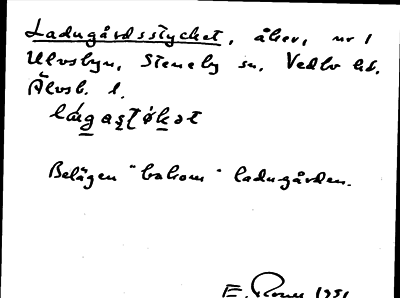 Ladugårdsstycket, åker, nr 1
Ulvsbyn, Steneby sn, Vedbo hd.
Älvsb. l.
Belägen "bakom" ladugården.
E. 1951